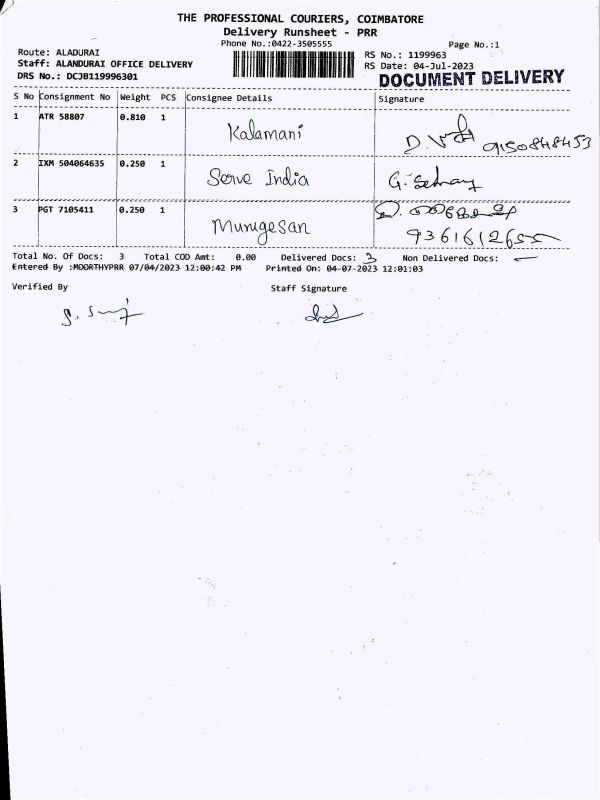 THE PROFESSIONAL COURIERS, COIMBATORE
Delivery Runsheet - PRR
Phone No.:0422-3505555
Page No.:1
Route: ALADURAI
RS No.: 1199963
Staff: ALANDURAI OFFICE DELIVERY
RS Date: 04-Jul-2023
DRS No.: DCJB119996301
DOCUMENT DELIVERY
S No Consignment No Weight PCS Consignee Details Signature
1 ATR 58807 0.810 1 Kalamani
9150848453
2 IXM 504064635 0.250 1 Serve India G.
3 PGT 7105411 0.250 1 Murugesan
9361612655
Total No. Of Docs: 3 Total COD Amt: 0.00 Delivered Docs: 3 Non Delivered Docs: -
Entered By :MOORTHYPRR 07/04/2023 12:00:42 PM Printed On: 04-07-2023 12:01:03
Verified By Staff Signature